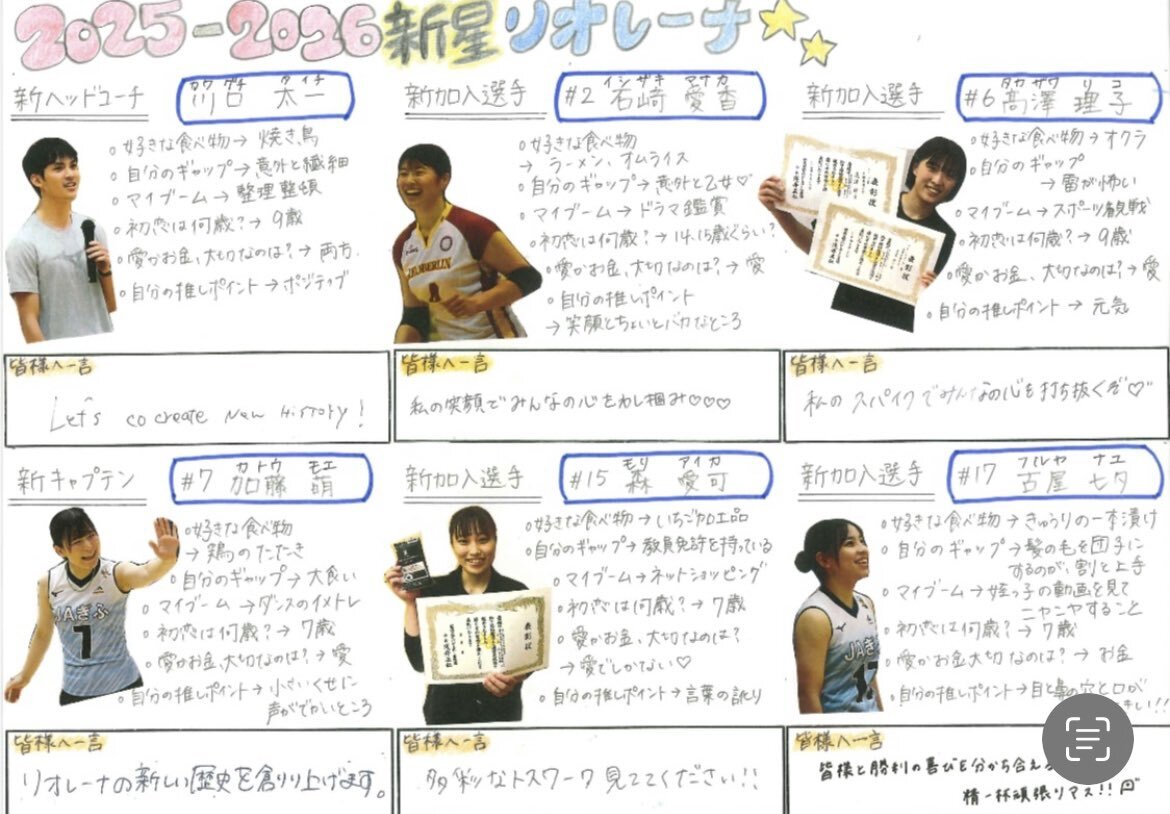 2025-2026 新星リオレーナ
新ヘッドコーチ
カワグチ タイチ
川口 太一
○好きな食べ物→焼き鳥
○自分のギャップ→意外と繊細
○マイブーム→整理整頓
○初恋は何歳?→9歳
○愛かお金、大切なのは?→両方.
○自分の推しポイント→ポジティブ
皆様へ一言
Let's co create New History!
新加入選手
イシザキ マナカ
#2 石崎 愛香
○好きな食べ物
→ラーメン、オムライス
○自分のギャップ→意外と乙女♡
○マイブーム→ドラマ鑑賞
○初恋は何歳?→14、15歳ぐらい?
○愛かお金、大切なのは?→愛
○自分の推しポイント
→笑顔とちょいとバカなところ
皆様へ一言
私の笑顔でみんなの心をわし掴み♡♡♡
新加入選手
タカザワ リコ
#6 髙澤 理子
○好きな食べ物→オクラ
○自分のギャップ
→雷が怖い
○マイブーム→スポーツ観戦
○初恋は何歳?→9歳
○愛かお金、大切なのは?→愛
○自分の推しポイント→元気
表彰状
表彰状
皆様へ一言
私のスパイクでみんなの心を打ち抜くぞ♡
新キャプテン
カトウ モエ
#7 加藤 萌
○好きな食べ物
→鶏のたたき
○自分のギャップ→大食い
○マイブーム→ダンスのイメトレ
○初恋は何歳?→7歳
○愛かお金、大切なのは?→愛
○自分の推しポイント→小さいくせに
声がでかいところ
JAぎふ
7
皆様へ一言
リオレーナの新しい歴史を創り上げます。
新加入選手
モリ アイカ
#15 森 愛可
○好きな食べ物→いちご加工品
○自分のギャップ→教員免許を持っている
○マイブーム→ネットショッピング
○初恋は何歳?→7歳
○愛かお金、大切なのは?
→愛でしかない♡
○自分の推しポイント→言葉の訛り
表彰状
皆様へ一言
多彩なトスワーク見ててください!!
新加入選手
フルヤ ナユ
#17 古屋 七夕
○好きな食べ物→きゅうりの一本漬け
○自分のギャップ→髪の毛を団子に
するのが、割と上手
○マイブーム→姪っ子の動画を見て
ニヤニヤすること
○初恋は何歳?→7歳
○愛かお金大切なのは?→お金
○自分の推しポイント→目と鼻の穴と口が
きい!!
JAぎ
17
皆様へ一言
皆様と勝利の喜びを分かち合える
精一杯頑張リマス!!